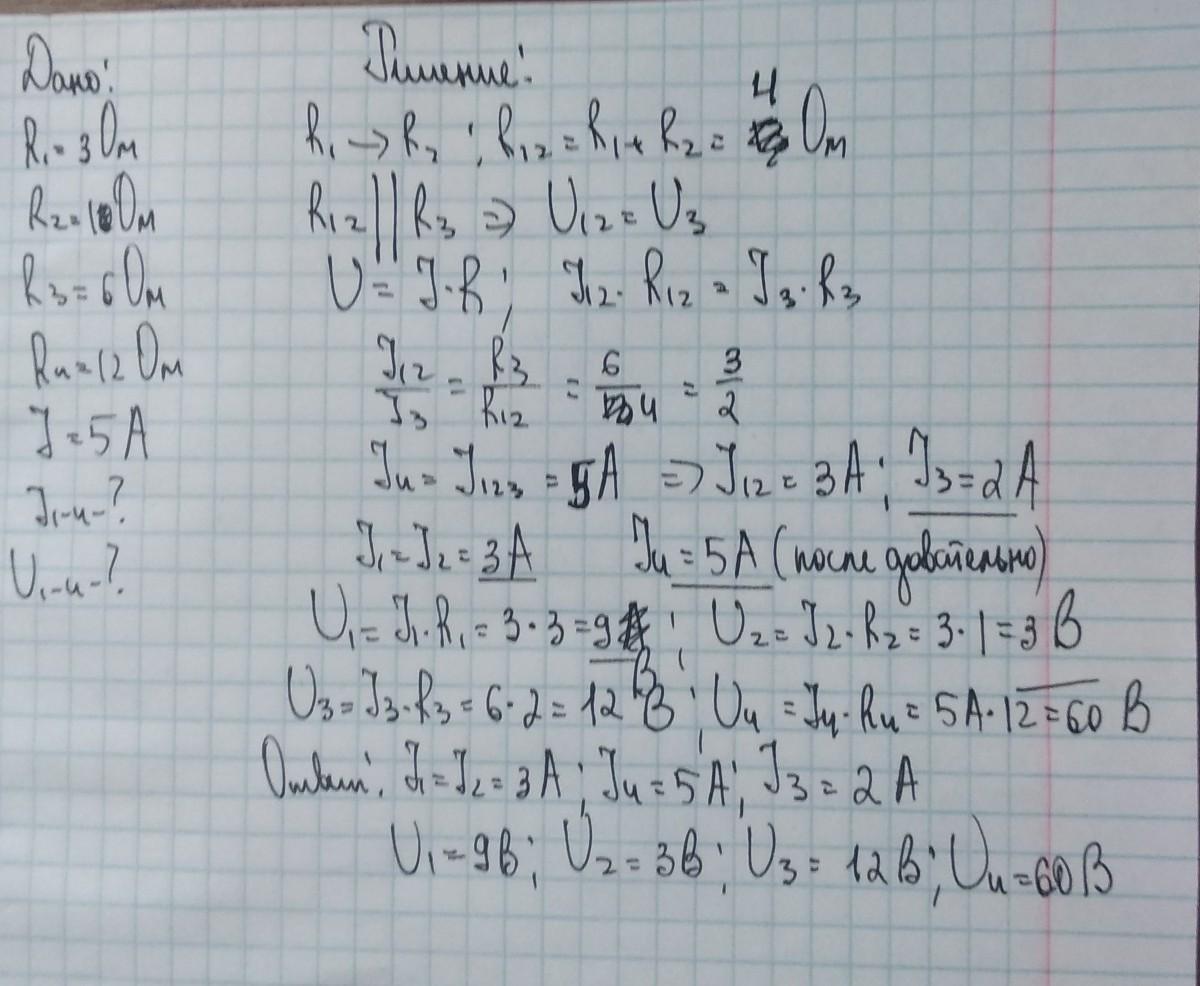 Дано:
R₁=3 Ом
R₂=1 Ом
R₃=6 Ом
R₄=12 Ом
J=5А
J₁₋₄-?
U₁₋₄-?
Решение:
R₁→R₂; R₁₂=R₁+R₂=4 Ом
R₁₂||R₃ ⇒ U₁₂=U₃
U=J·R; J₁₂·R₁₂=J₃·R₃
J₁₂/J₃=R₃/R₁₂=6/4=3/2
J₄=J₁₂₃=5А ⇒ J₁₂=3А; J₃=2А
J₁=J₂=3А J₄=5А (последовательно)
U₁=J₁·R₁=3·3=9В; U₂=J₂·R₂=3·1=3В
U₃=J₃·R₃=6·2=12В; U₄=J₄·R₄=5А·12=60В
Ответ: J₁=J₂=3А; J₄=5А; J₃=2А
U₁=9В; U₂=3В; U₃=12В; U₄=60В